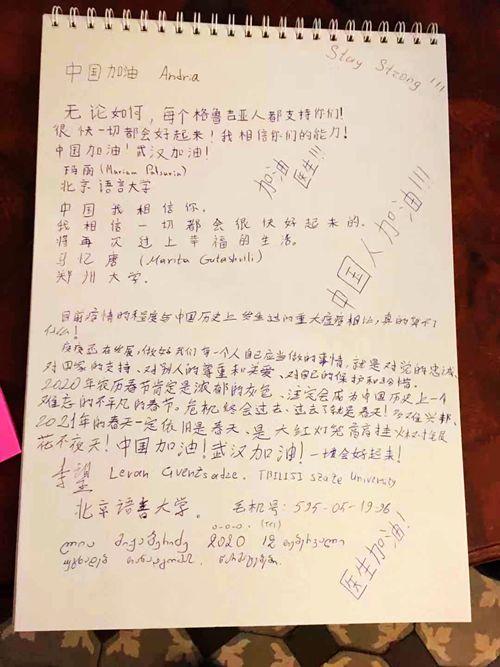 Stay Strong!!!
中国加油 Andria
无论如何,每个格鲁吉亚人都支持你们!
很快一切都会好起来!我相信你们的能力!
中国加油!武汉加油!
玛丽 (Mariam
北京语言大学
加油
医生!!!
中国我相信你.
我相信一切都会很快好起来的.
将再次过上幸福的生活.
马忆唐 (Marita Gutashvili)
郑州大学.
中国人加油!!!
目前疫情的程度与中国历史上发生过的重大瘟疫相比,真的算不了
什么!
疫虔正在发展,做好我们每一个人自己应当做的事情,就是对党的忠诚、
对国家的支持、对别人的尊重和关爱、对自己的保护和珍惜.
2020年农历春节肯定是浓郁的灰色,注定会成为中国历史上一个
难忘的不平凡的春节。危机终会过去,过去了就是春天!多难兴邦,
2021年的春天一定依旧是春天、是大红灯笼高高挂
花不夜天!中国加油!武汉加油!一切会好起来!
李望 Levan Gventsadze. TBILISI State University
北京语言大学. 毛机号: 595-05-19-36
2020 12
医生加油!